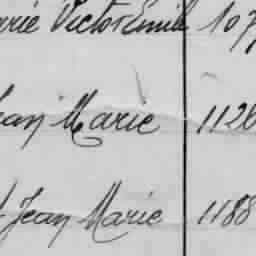 Victor Émile 107
Jean Marie 1126
Jean Marie 1188